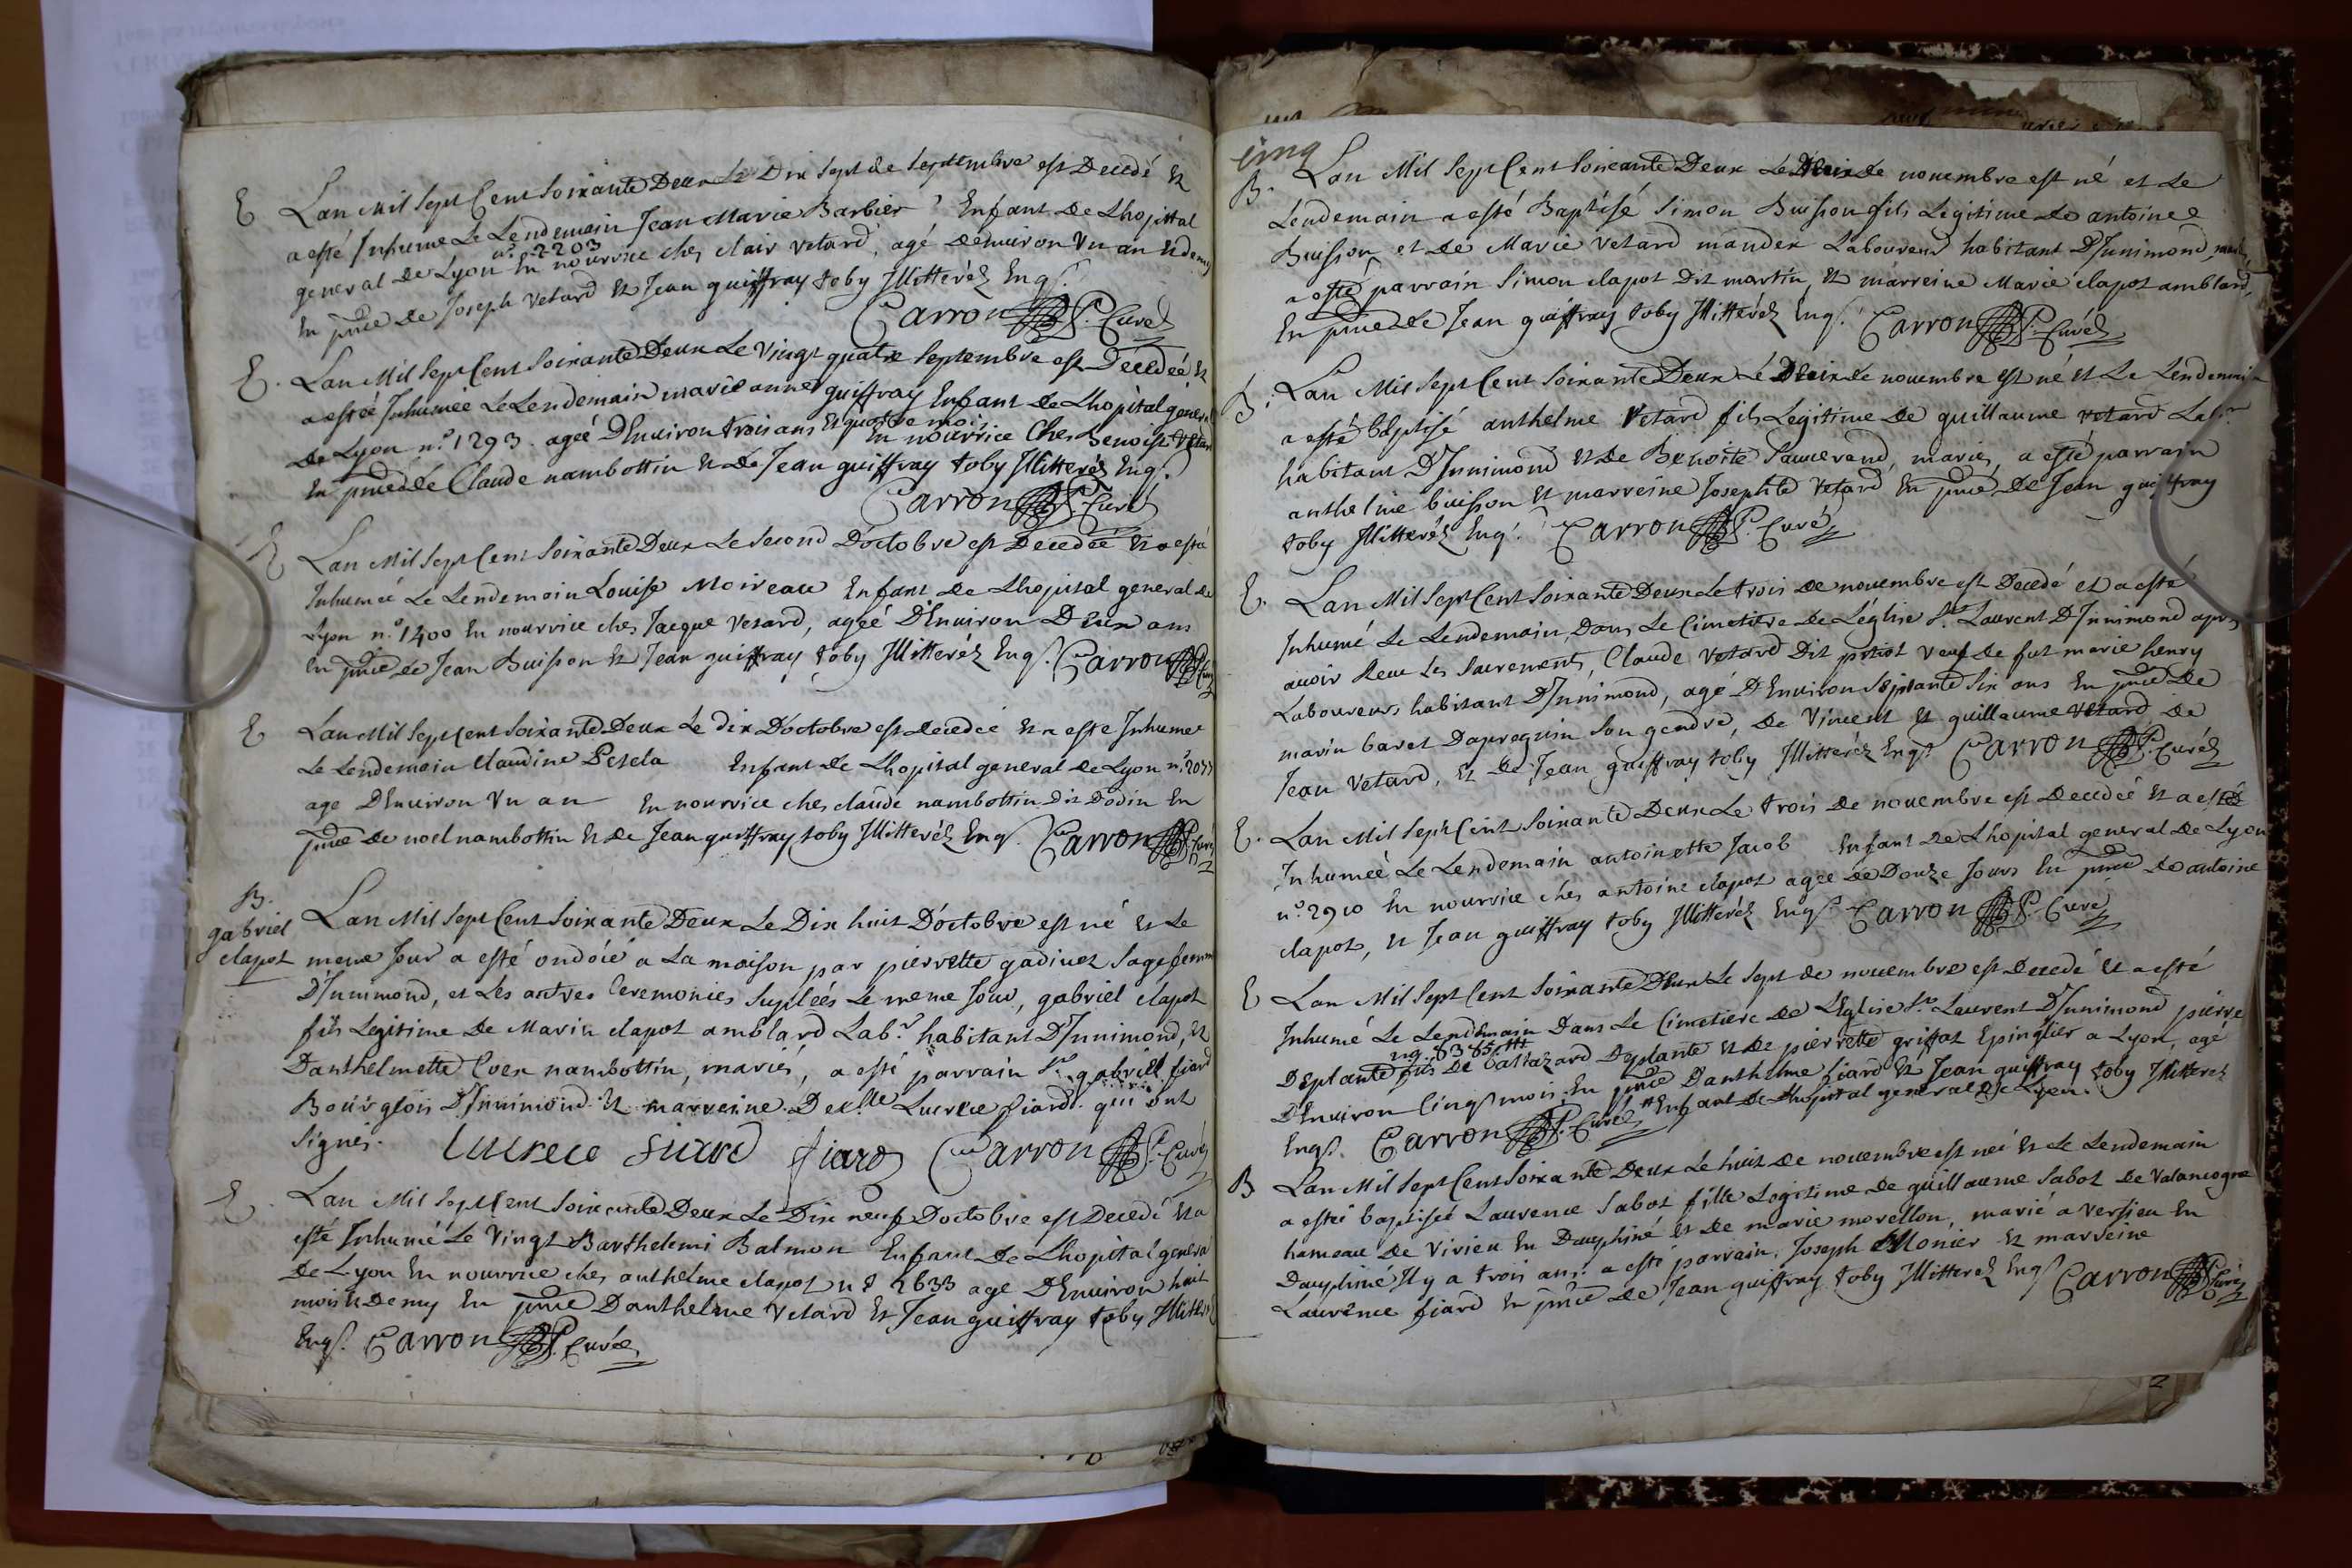 E Lan Mil Sept Cent Soixante Deux Le Dix Sept de Septembre est Decedé et
a esté Inhume Le Lendemain Jean Marie Barbier Enfant de Lhopittal
n.° 2203
general de Lyon En nourrice ches clair vetard, agé denviron Vn an et demy
En pnce de Joseph vetard et Jean guiffray toby Illitteréz Enqs.
Carron P. Curé
E. Lan Mil Sept Cent Soixante Deux Le Vingt quatre Septembre est Décedéé et
a estéé Inhumee Le Lendemain marie anne guiffray Enfant de Lhopital general
De Lyon n.° 1293. ageé DEnviron trois ans et quatre mois
En nourrice Ches Benoist Vetard
En pnce de Claude nambottin et de Jean guiffray toby Illitteréz Enqs.
Carron P. Curé
E Lan Mil Sept Cent Soixante Deux Le Second Doctobre est Decedéé et a esté
Inhuméé Le Lendemain Louise Moireau Enfant de Lhopital general de
Lyon n.° 1400 En nourrice ches Jacque Vetard, agéé DEnviron Deux ans
En pnce de Jean Buisson et Jean guiffray toby Illitteréz Enqs. Carron P. Curé
E Lan Mil Sept Cent Soixante Deux Le dix Doctobre est decedéé et a este Inhumee
Le Lendemain Claudine Enfant de Lhopital general de Lyon n.°
age DEnviron Vn an En nourrice ches claude nambottin Dit Dodin En
pnce de noel nambottin et de Jean guiffray toby Illitteréz Enqs. Carron P. Curé
B.
gabriel
clapot
Lan Mil Sept Cent Soixante Deux Le Dix huit Doctobre est né et Le
meme Jour a esté ondoié a La maison par pierrette gadinet Sagefemme
D'Innimond, et Les autres Ceremonies Supléés Le meme Jour, gabriel clapot
fils Legitime de Marin clapot amblard Lab.r habitant D'Innimond, et
Danthelmette nambottin, mariés, a esté parrain S.r gabriel fiard
Bourgeois D'Innimond et marreine Delle Lucrece fiard qui ont
Signés. Lucrece fiard fiard Carron P. Curé
E. Lan Mil Sept Cent Soixante Deux Le Dix neuf Doctobre est Decedé et a
esté Inhumé Le Vingt Barthelemi Balmon Enfant de Lhopital general
De Lyon En nourrice ches anthelme clapot n.° 2633 age DEnviron huit
mois et Demy En pnce Danthelme Vetard et Jean guiffray toby Illitteréz
Enqs. Carron P. Curé
cinq
B. Lan Mil Sept Cent Soixante Deux Le de novembre est né et Le
Lendemain a esté Baptisé Simon Buisson fils Legitime de antoine
Buisson et de Marie Vetard Laboureur habitant D'Innimond, mariés
a esté parrain Simon clapot Dit martin, et marreine Marie clapot amblard,
En pnce de Jean guiffray toby Illitteréz Enqs. Carron P. Curé
B. Lan Mil Sept Cent Soixante Deux Le de novembre est né et Le Lendemain
a esté Baptisé anthelme Vetard fils Legitime de guillaume vetard Lab.r
habitant D'Innimond et de Benoite Sauverand, mariés, a esté parrain
anthelme buisson et marreine Josephte Vetard En pnce De Jean guiffray
toby Illitteréz Enqs. Carron P. Curé
E. Lan Mil Sept Cent Soixante Deux Le trois de novembre est Decedé et a esté
Inhumé Le Lendemain, Dans Le Cimetiere de Léglise St. Laurent D'Innimond apres
avoir Receu Les Sacrements, Claude Vetard Dit veuf de fut marie henry
Laboureur, habitant D'Innimond, agé DEnviron Septante Six ans En pnce De
marin baret Dapregnin Son gendre, de Vincent et guillaume vetard de
Jean Vetard, et de Jean guiffray toby Illitteréz Enqs. Carron P. Curé
E. Lan Mil Sept Cent Soixante Deux Le trois de novembre est Decedéé et a esté
Inhuméé Le Lendemain antoinette Jacob Enfant de Lhopital general de Lyon
n.° 2910 En nourrice ches antoine clapot agee de Douze Jours En pnce de antoine
clapot, et Jean guiffray toby Illitteréz Enqs. Carron P. Curé
E Lan Mil Sept Cent Soixante Deux Le Sept de novembre est Decedé et a esté
Inhumé Le Lendemain Dans Le Cimetiere de L'Eglise St. Laurent D'Innimond pierre
Deplante fils de Baltazard Deplante et de pierrette griffat Epinglier a Lyon, agé
DEnviron Cinq mois, En pnce Danthelme fiard et Jean guiffray toby Illitteréz
Enqs. Carron P. Curé # Enfant de Lhopital general de Lyon.
B Lan Mil Sept Cent Soixante Deux Le huit de novembre est neé et Le Lendemain
a esteé baptiseé Laurence Sabot fille Legitime de guillaume Sabot de Valancogne
hameau de Virieu En Dauphiné et de marie morellon, marié a Versieu En
Dauphiné Il y a trois ans. a esté parrain, Joseph Monier et marreine
Laurence fiard En pnce de Jean guiffray toby Illitteréz Enqs Carron P. Curé